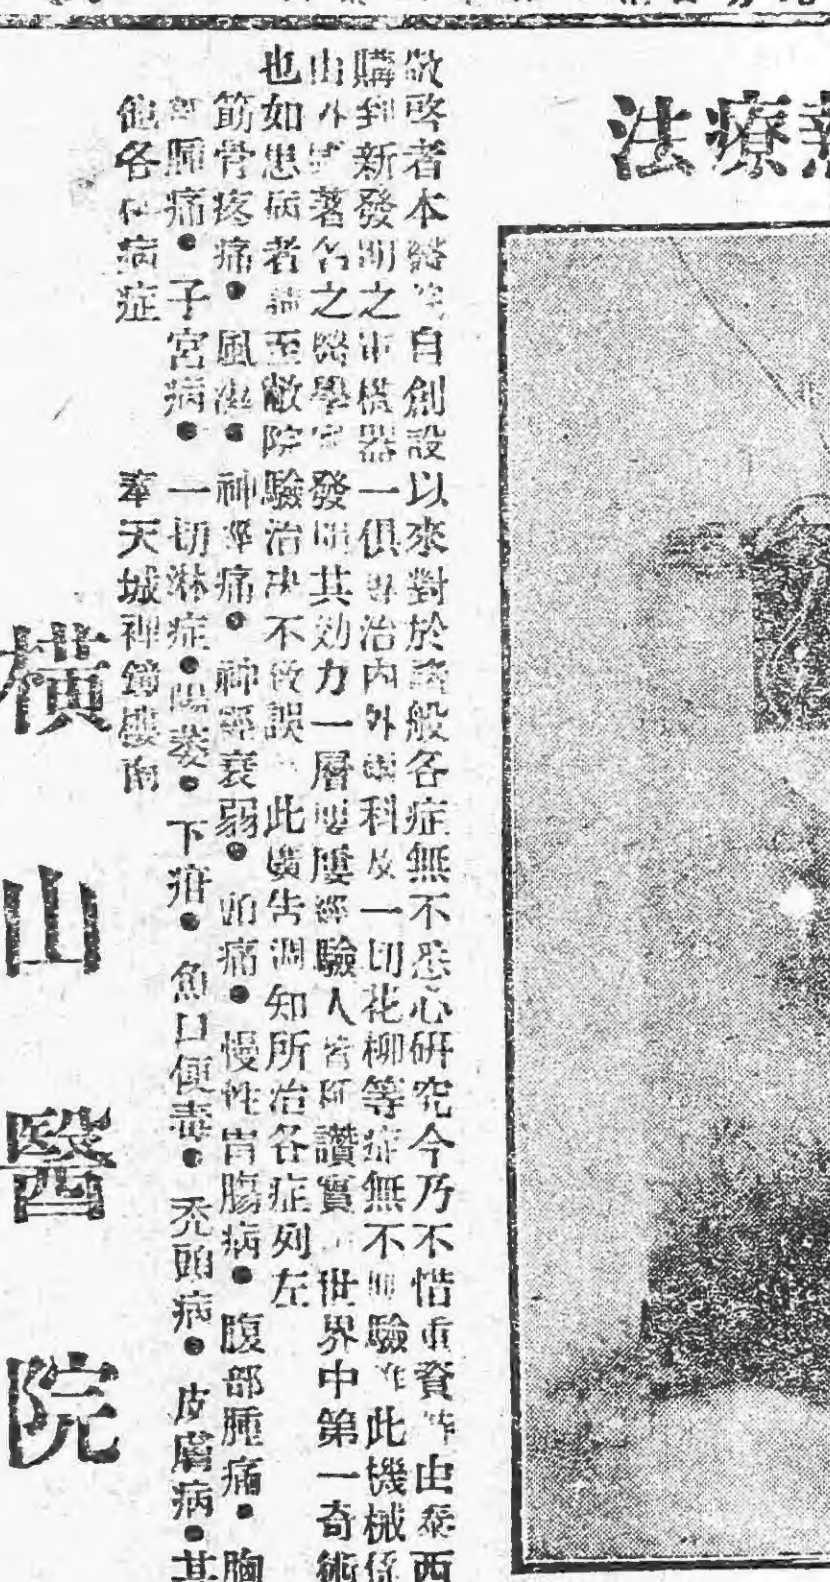 療法
敬啓者本醫院自創設以來對於諸般各症無不悉心研究今乃不惜重資特由泰西
購到新發明之電機器一俱專治內外兩科及一切花柳等症無不驗此機械係
由外著名之醫學家發明其効力一層屢經驗人皆稱讚實世界中第一奇術
也如患病者請至敝院驗治决不致誤此廣告週知所治各症列左
筋骨疼痛●風濕●神經痛●神經衰弱●頭痛●慢性胃腸病●腹部腫痛●胸
部腫痛●子宮病●一切淋症●陽萎●下疳●魚口便毒●禿頭病●皮膚病●其
他各種病症
奉天城裡鐘樓南
橫山醫院